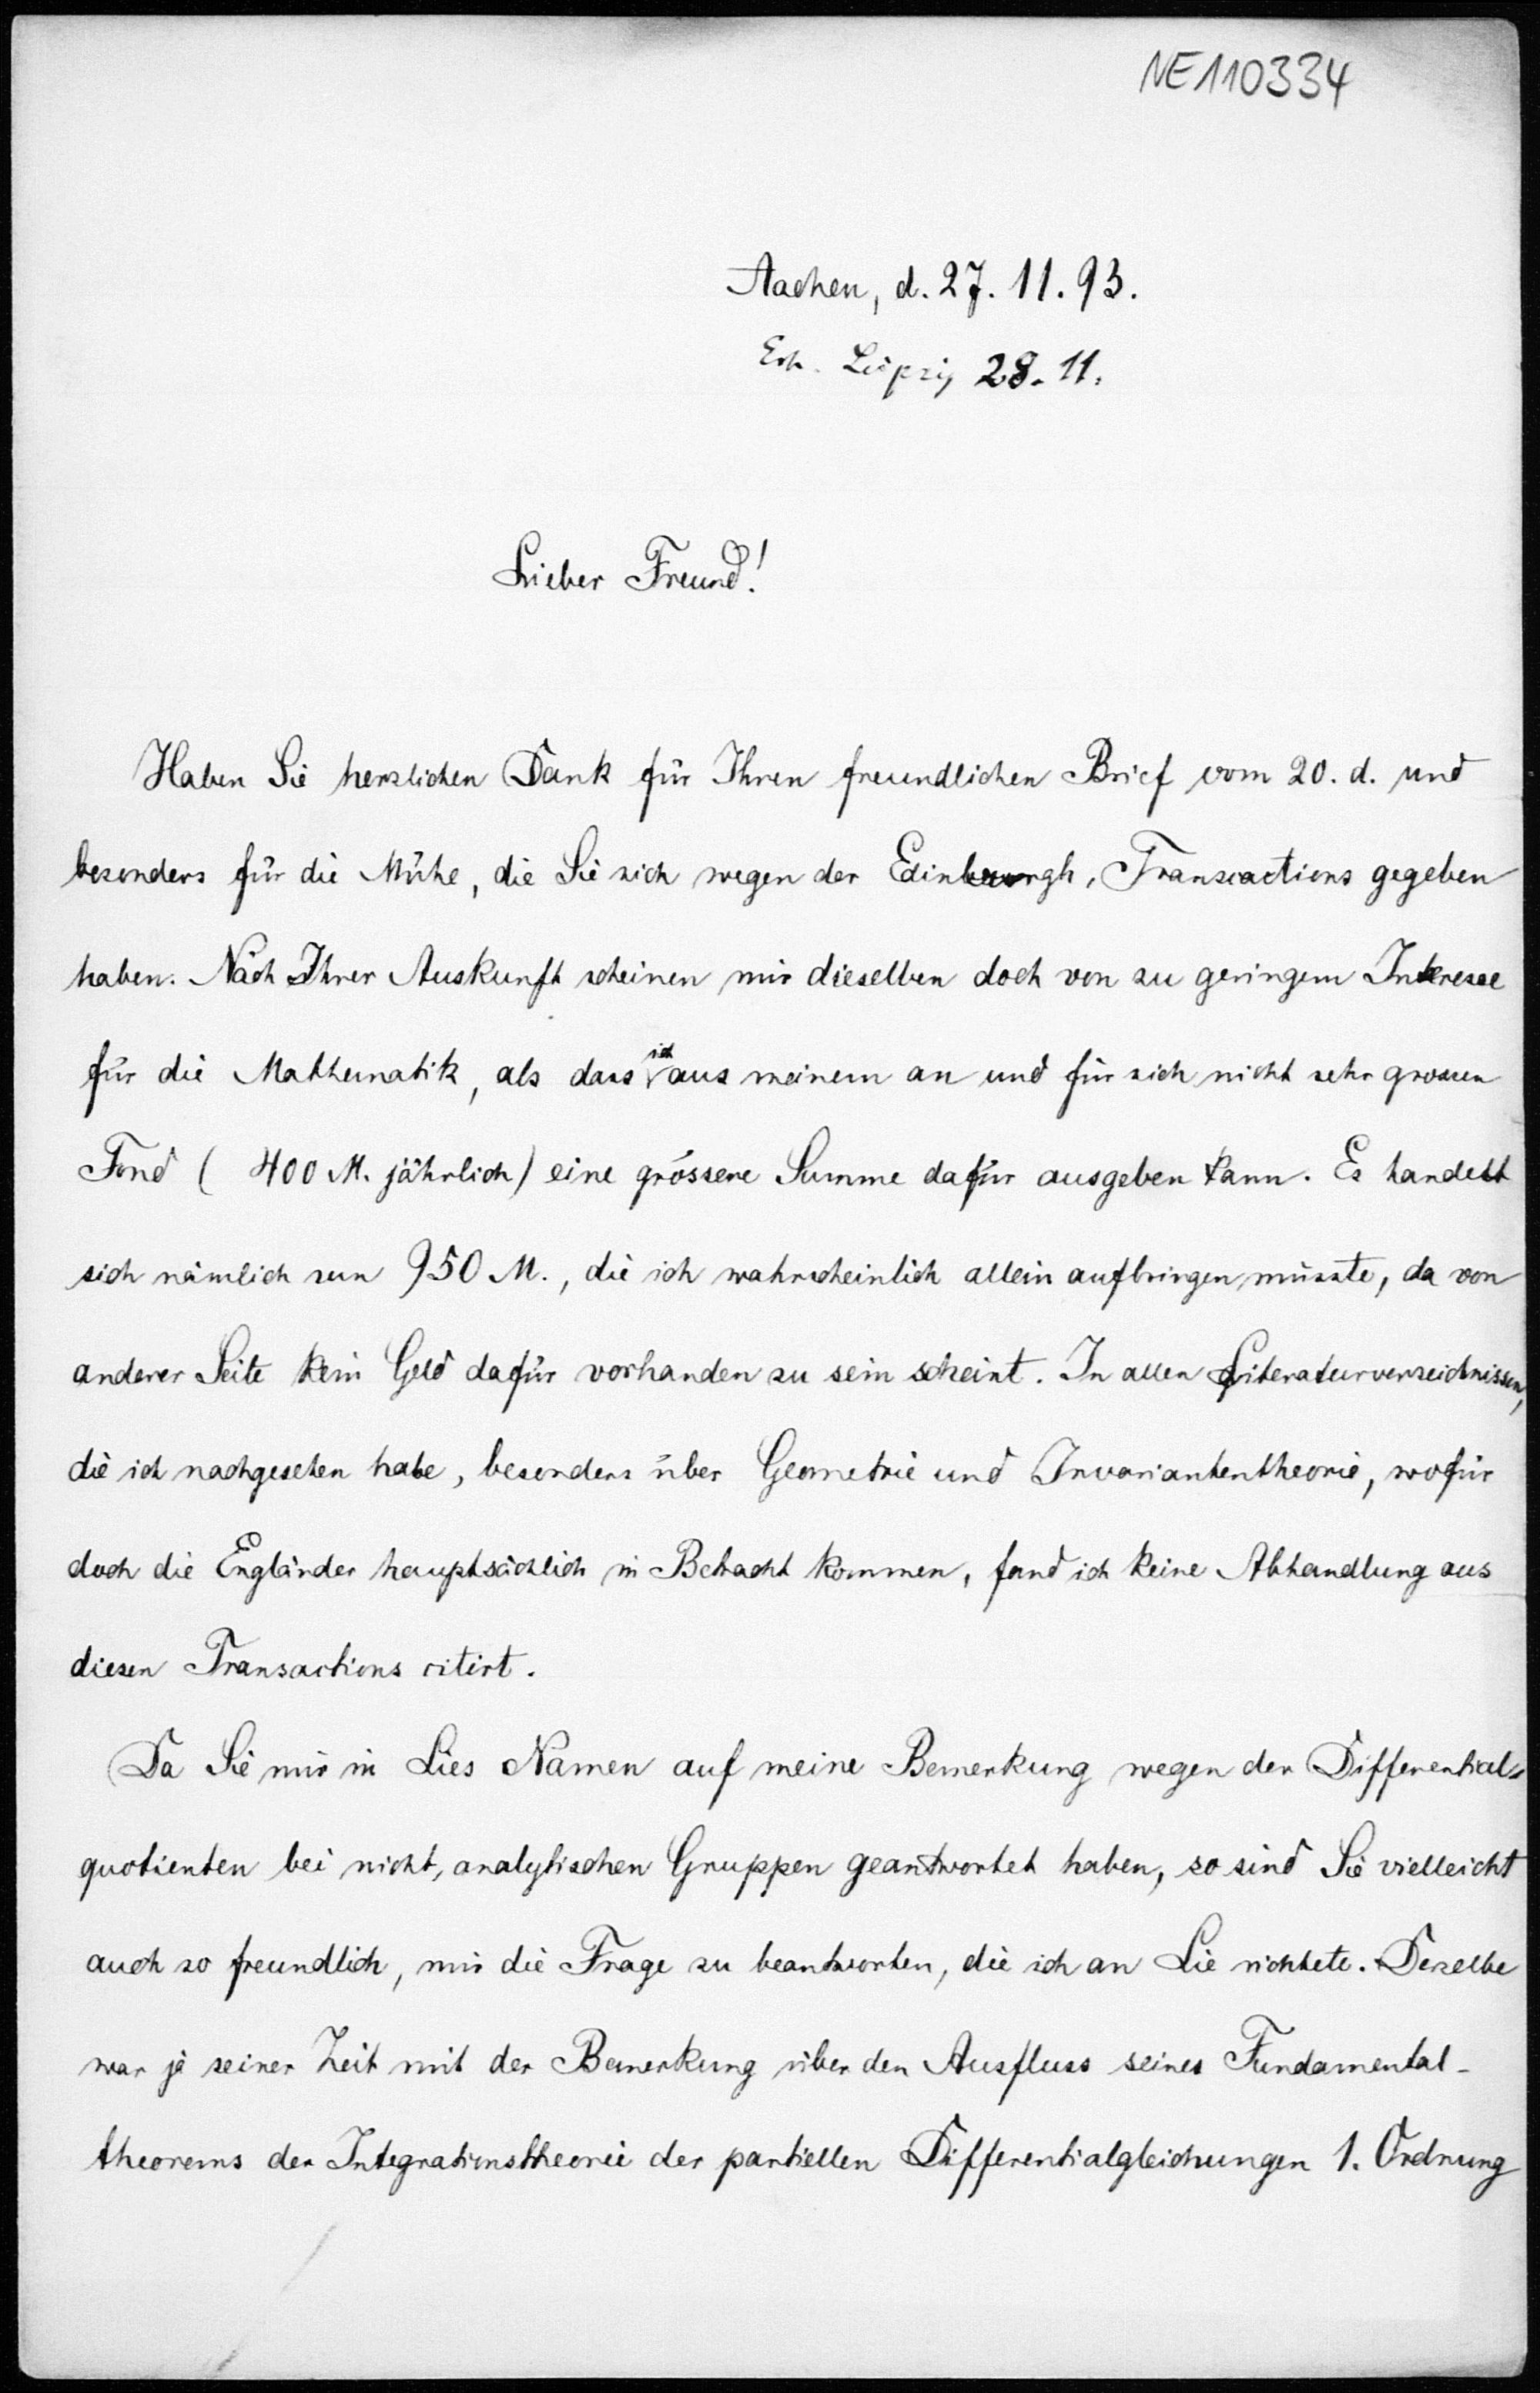 NE110334
Aachen, d. 27. 11. 93.
Erh. Leipzig 28. 11.
Lieber Freund!
Haben Sie herzlichen Dank für Ihren freundlichen Brief vom 20. d. und
besonders für die Mühe, die Sie sich wegen der Edinburgh, Transactions gegeben
haben. Nach Ihrer Auskunft scheinen mir dieselben doch von zu geringem Interesse
für die Mathematik, als dass ich aus meinem an und für sich nicht sehr grossen
Fond ( 400 M. jährlich) eine grössere Summe dafür ausgeben kann. Es handelt
sich nämlich um 950 M., die ich wahrscheinlich allein aufbringen müsste, da von
anderer Seite kein Geld dafür vorhanden zu sein scheint. In allen Literaturverzeichnissen,
die ich nachgesehen habe, besonders über Geometrie und Invariantentheorie, wofür
doch die Engländer hauptsächlich in Betracht kommen, fand ich keine Abhandlung aus
diesen Transactions citirt.
Da Sie mir in Lies Namen auf meine Bemerkung wegen der Differential-
quotienten bei nicht-analytischen Gruppen geantwortet haben, so sind Sie vielleicht
auch so freundlich, mir die Frage zu beantworten, die ich an Lie richtete. Derselbe
war ja seiner Zeit mit der Bemerkung über den Ausfluss seines Fundamental-
theorems der Integrationstheorie der partiellen Differentialgleichungen 1. Ordnung